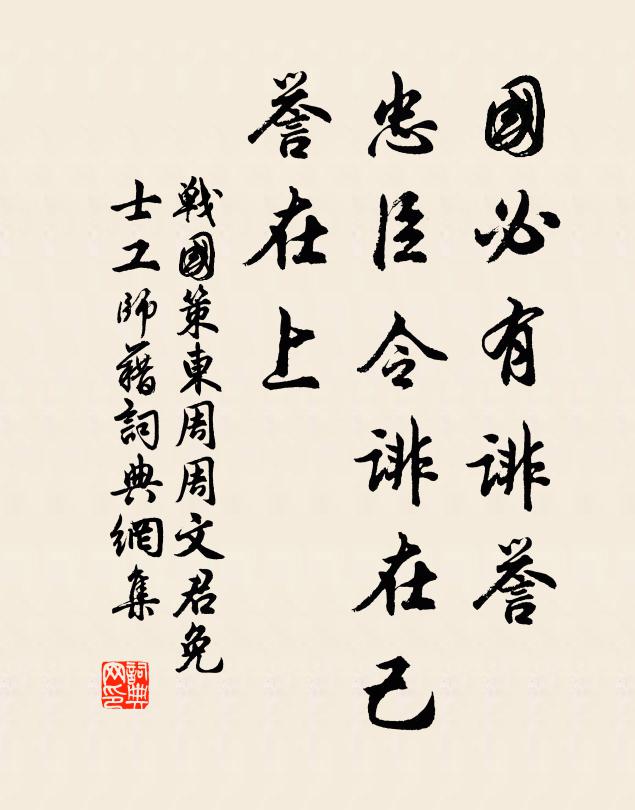 國必有誹譽
忠臣令誹在己
譽在上
戰國策東周周文君免
士工師藉詞典網集
詞典网印